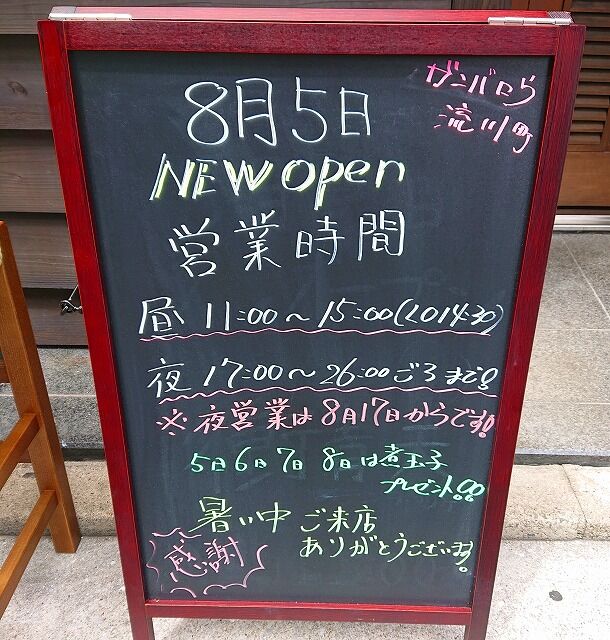 ガンバロら
流川町
8月5日
NEW open
営業時間
昼 11:00〜15:00(LO14:30)
夜 17:00〜26:00ごろまで!
※夜営業は8月17日からです!
5日6日7日8日は煮玉子
プレゼント!!
暑い中 ご来店
ありがとうございます!
感謝